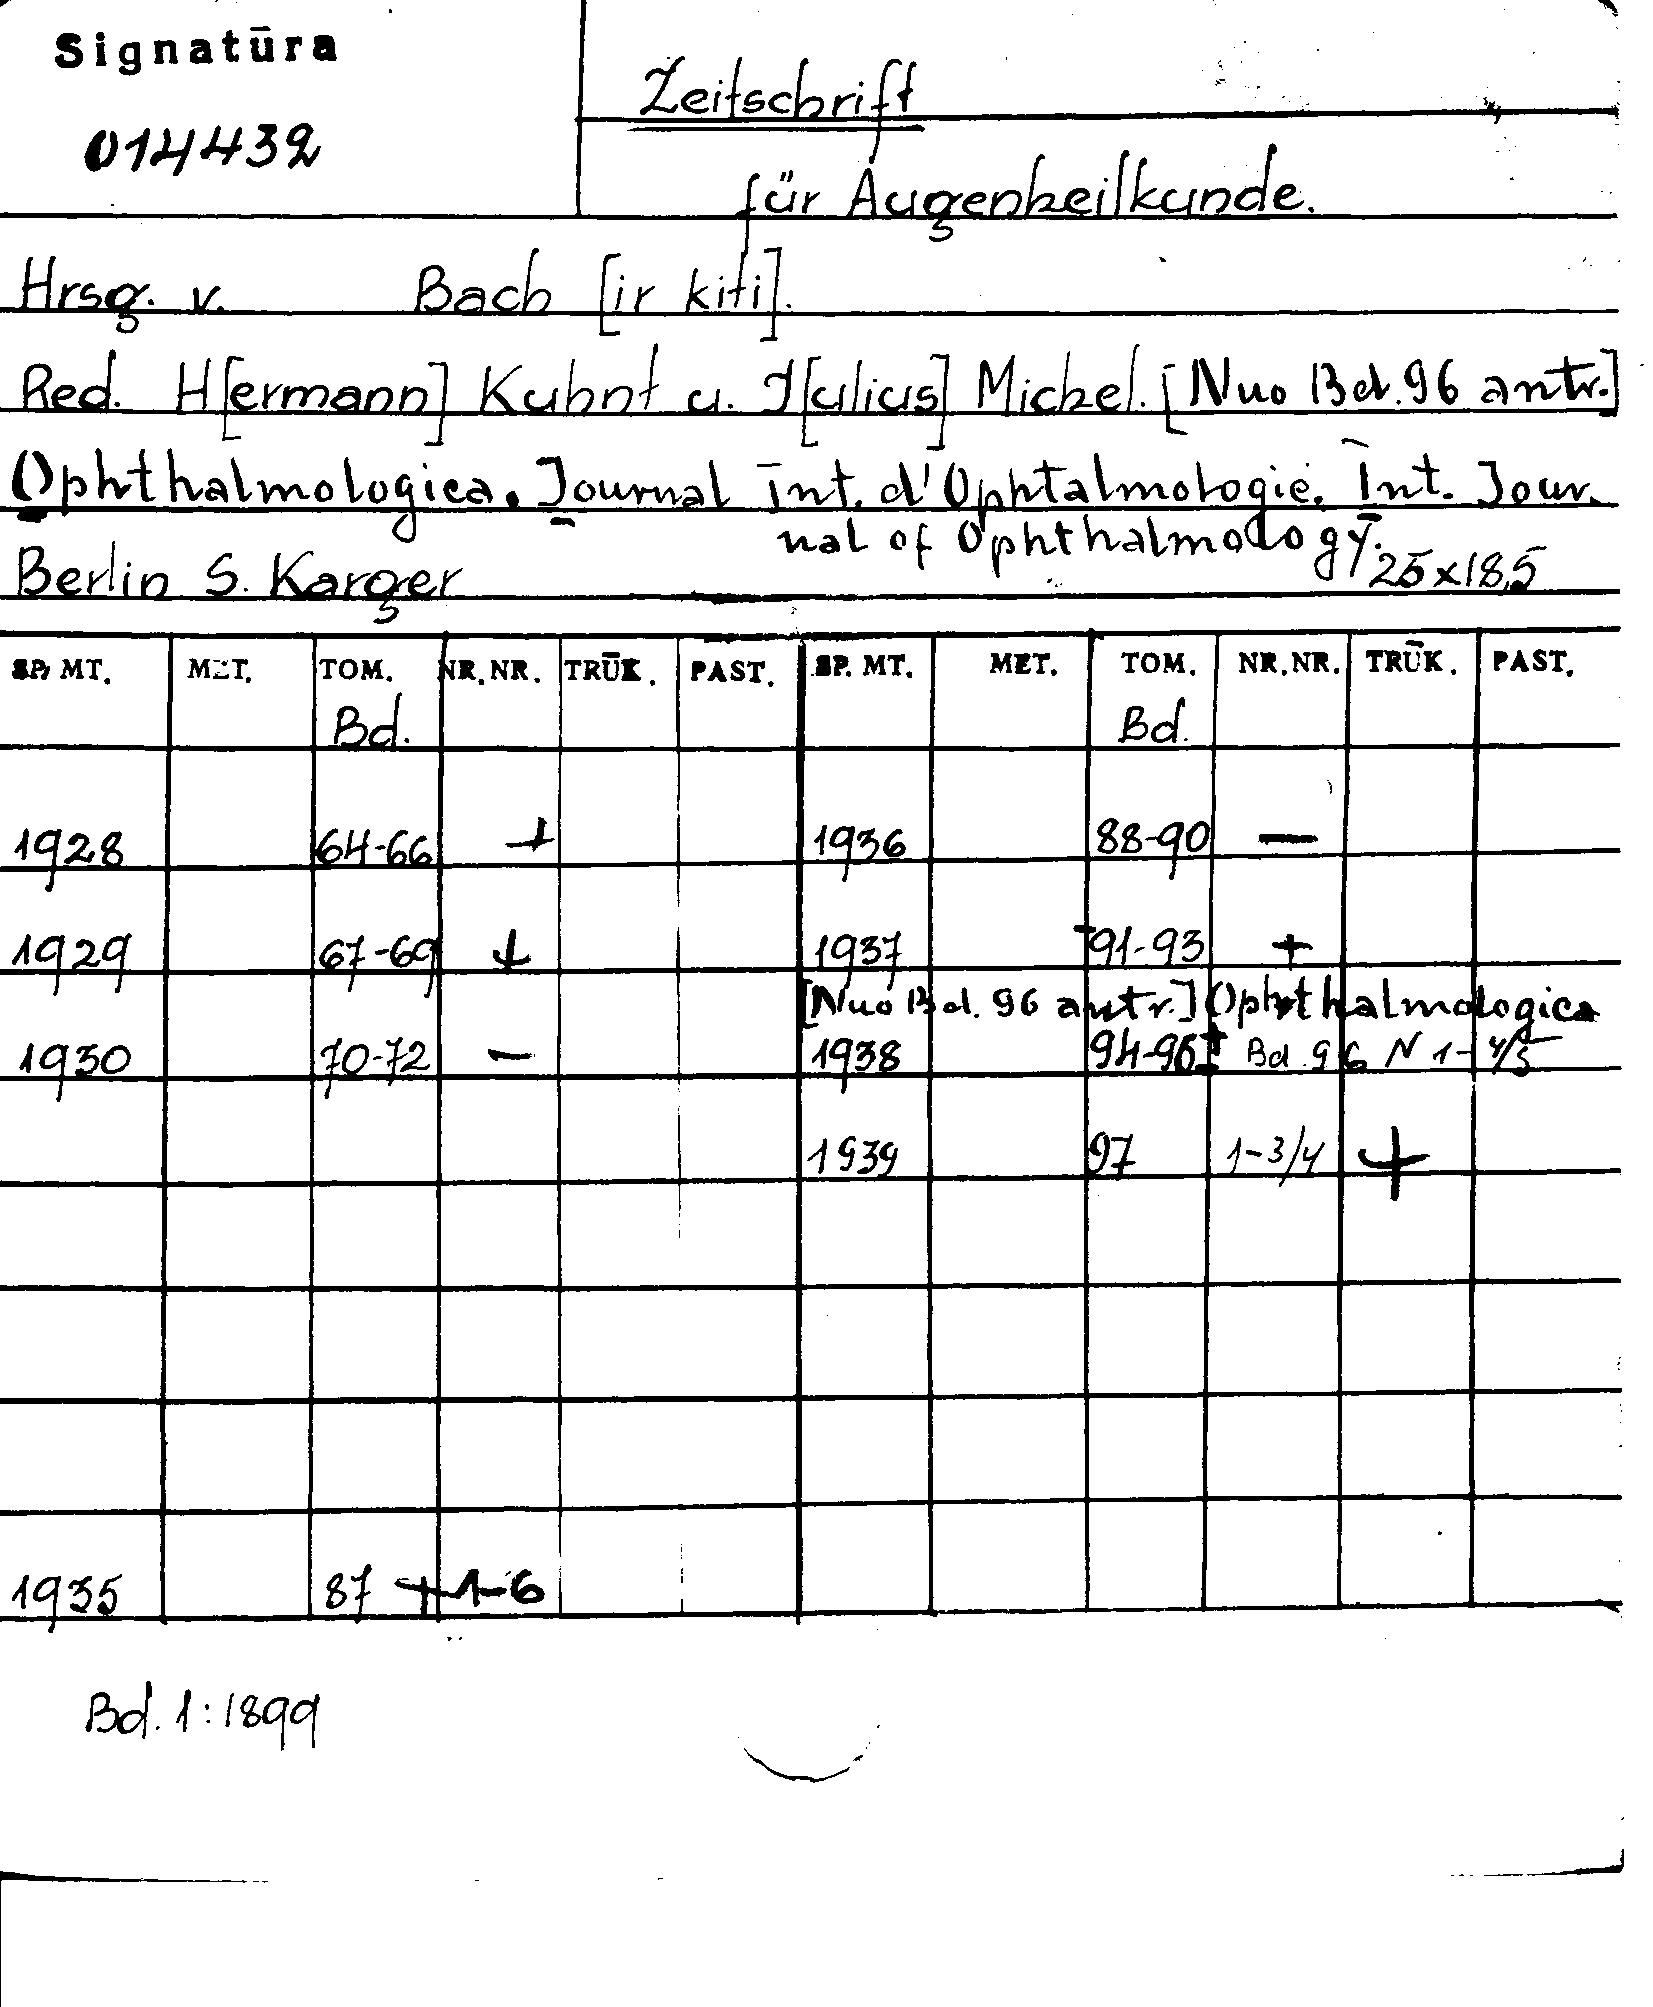 Signatūra
014432
Zeitschrift
für Augenheilkunde.
Hrsg. v. Bach [ir kiti].
Red. H[ermann] Kuhnt u. J[ulius] Michel. [Nuo Bd. 96 antr.]
Ophthalmologica. Journal int. d'Ophtalmologie. Int. Jour-
nal of Ophthalmology.
Berlin S. Karger 25x18,5
SP. MT. MET. TOM. NR.NR. TRŪK. PAST. SP. MT. MET. TOM. NR.NR. TRŪK. PAST.
Bd. Bd.
1928 64-66 + 1936 88-90 —
1929 67-69 + 1937 91-93 +
[Nuo Bd. 96 antr.] Ophthalmologica
1930 70-72 — 1938 94-96 + Bd. 96 N 1-4/5
1939 97 1-3/4 +
1935 87 + 1-6
Bd. 1:1899